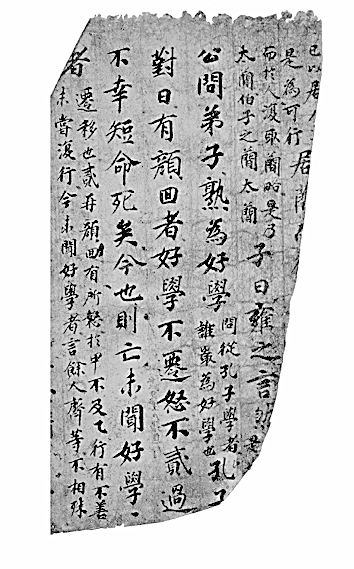 已以居人
是為可行 居蕳
而於人復取蕳
太蕳伯子之蕳太蕳 子曰雍之言然
公問弟子熟為好學 問從孔子學者誰冣為好學也 孔子
對曰有顏回者好學不遷怒不貳過
不幸短命死矣今也則亡未聞好學、
者 遷移也貳再顏回有所怒於甲不及乙行有不善
未嘗復行今未聞好學者言餘人聲等不相殊